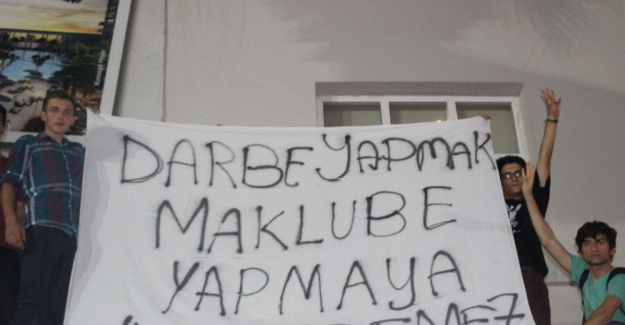 DARBE YAPMAK
MAKLUBE
YAPMAYA